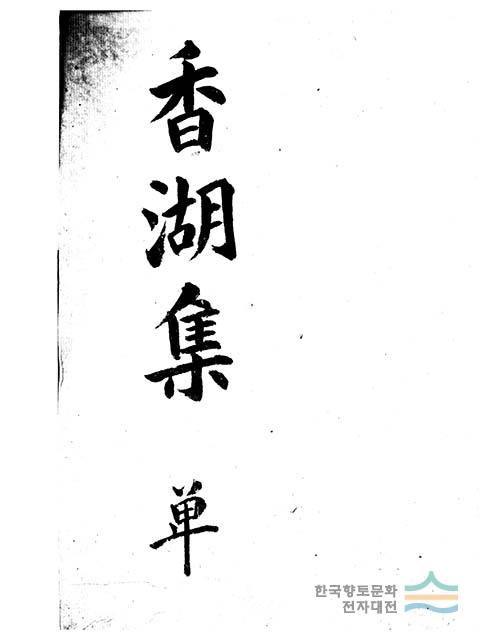 香湖集 单
한국향토문화
전자대전